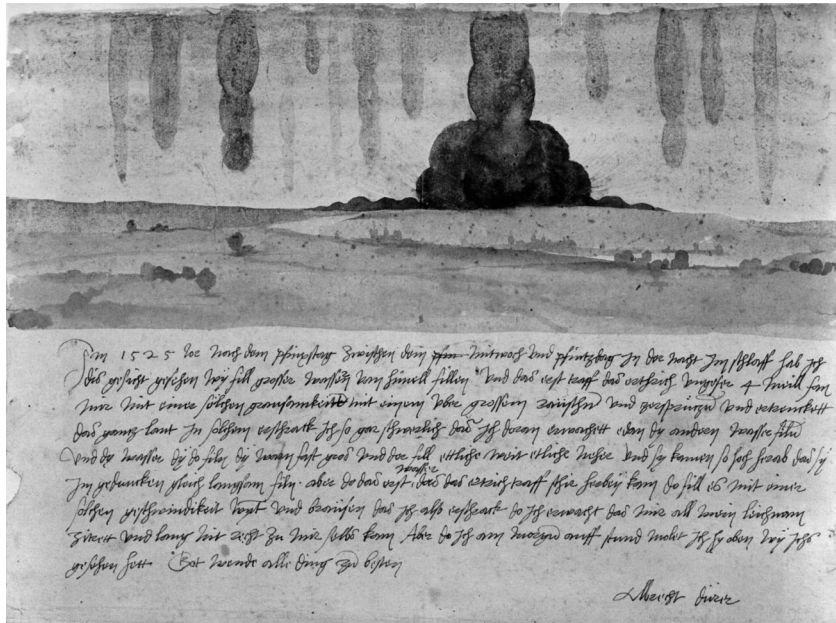 Im 1525 Jor nach dem pfinxstag zwischen dem mitwoch und pfintzdag in der nacht im schlaff hab ich
dis gesicht gesehen wy fill grosser wassern vom himell fillen Und das erst traff das erthrich ungefer 4 meill fan
mir mit einer solchen grausamkeitt mit einem uber grossem raüschn und zersprützn und ertrenckett
das gantz lant In solchem erschrack ich so gar schwerlich das ich doran erwachett edan dy andern wasser filn
Und dy wasser dy do filn dy warn fast gros und der fill ettliche weit ettliche neher und sy kamen so hoch herab das sy
im gedancken gleich langsam filn aber do das erst wasser das das ertrich traff schir herbey kam do fill es mit einer
solchen geschwindikeit wynt und braüsen das ich also erschrack do ich erwacht das mir all mein leichnam
zitrett und lang nit recht zu mir selbs kam Aber do ich am morgn auff stund molet ich hy oben wy ichs
gesehen hett Got wende alle ding zu besten
Albrecht dürer